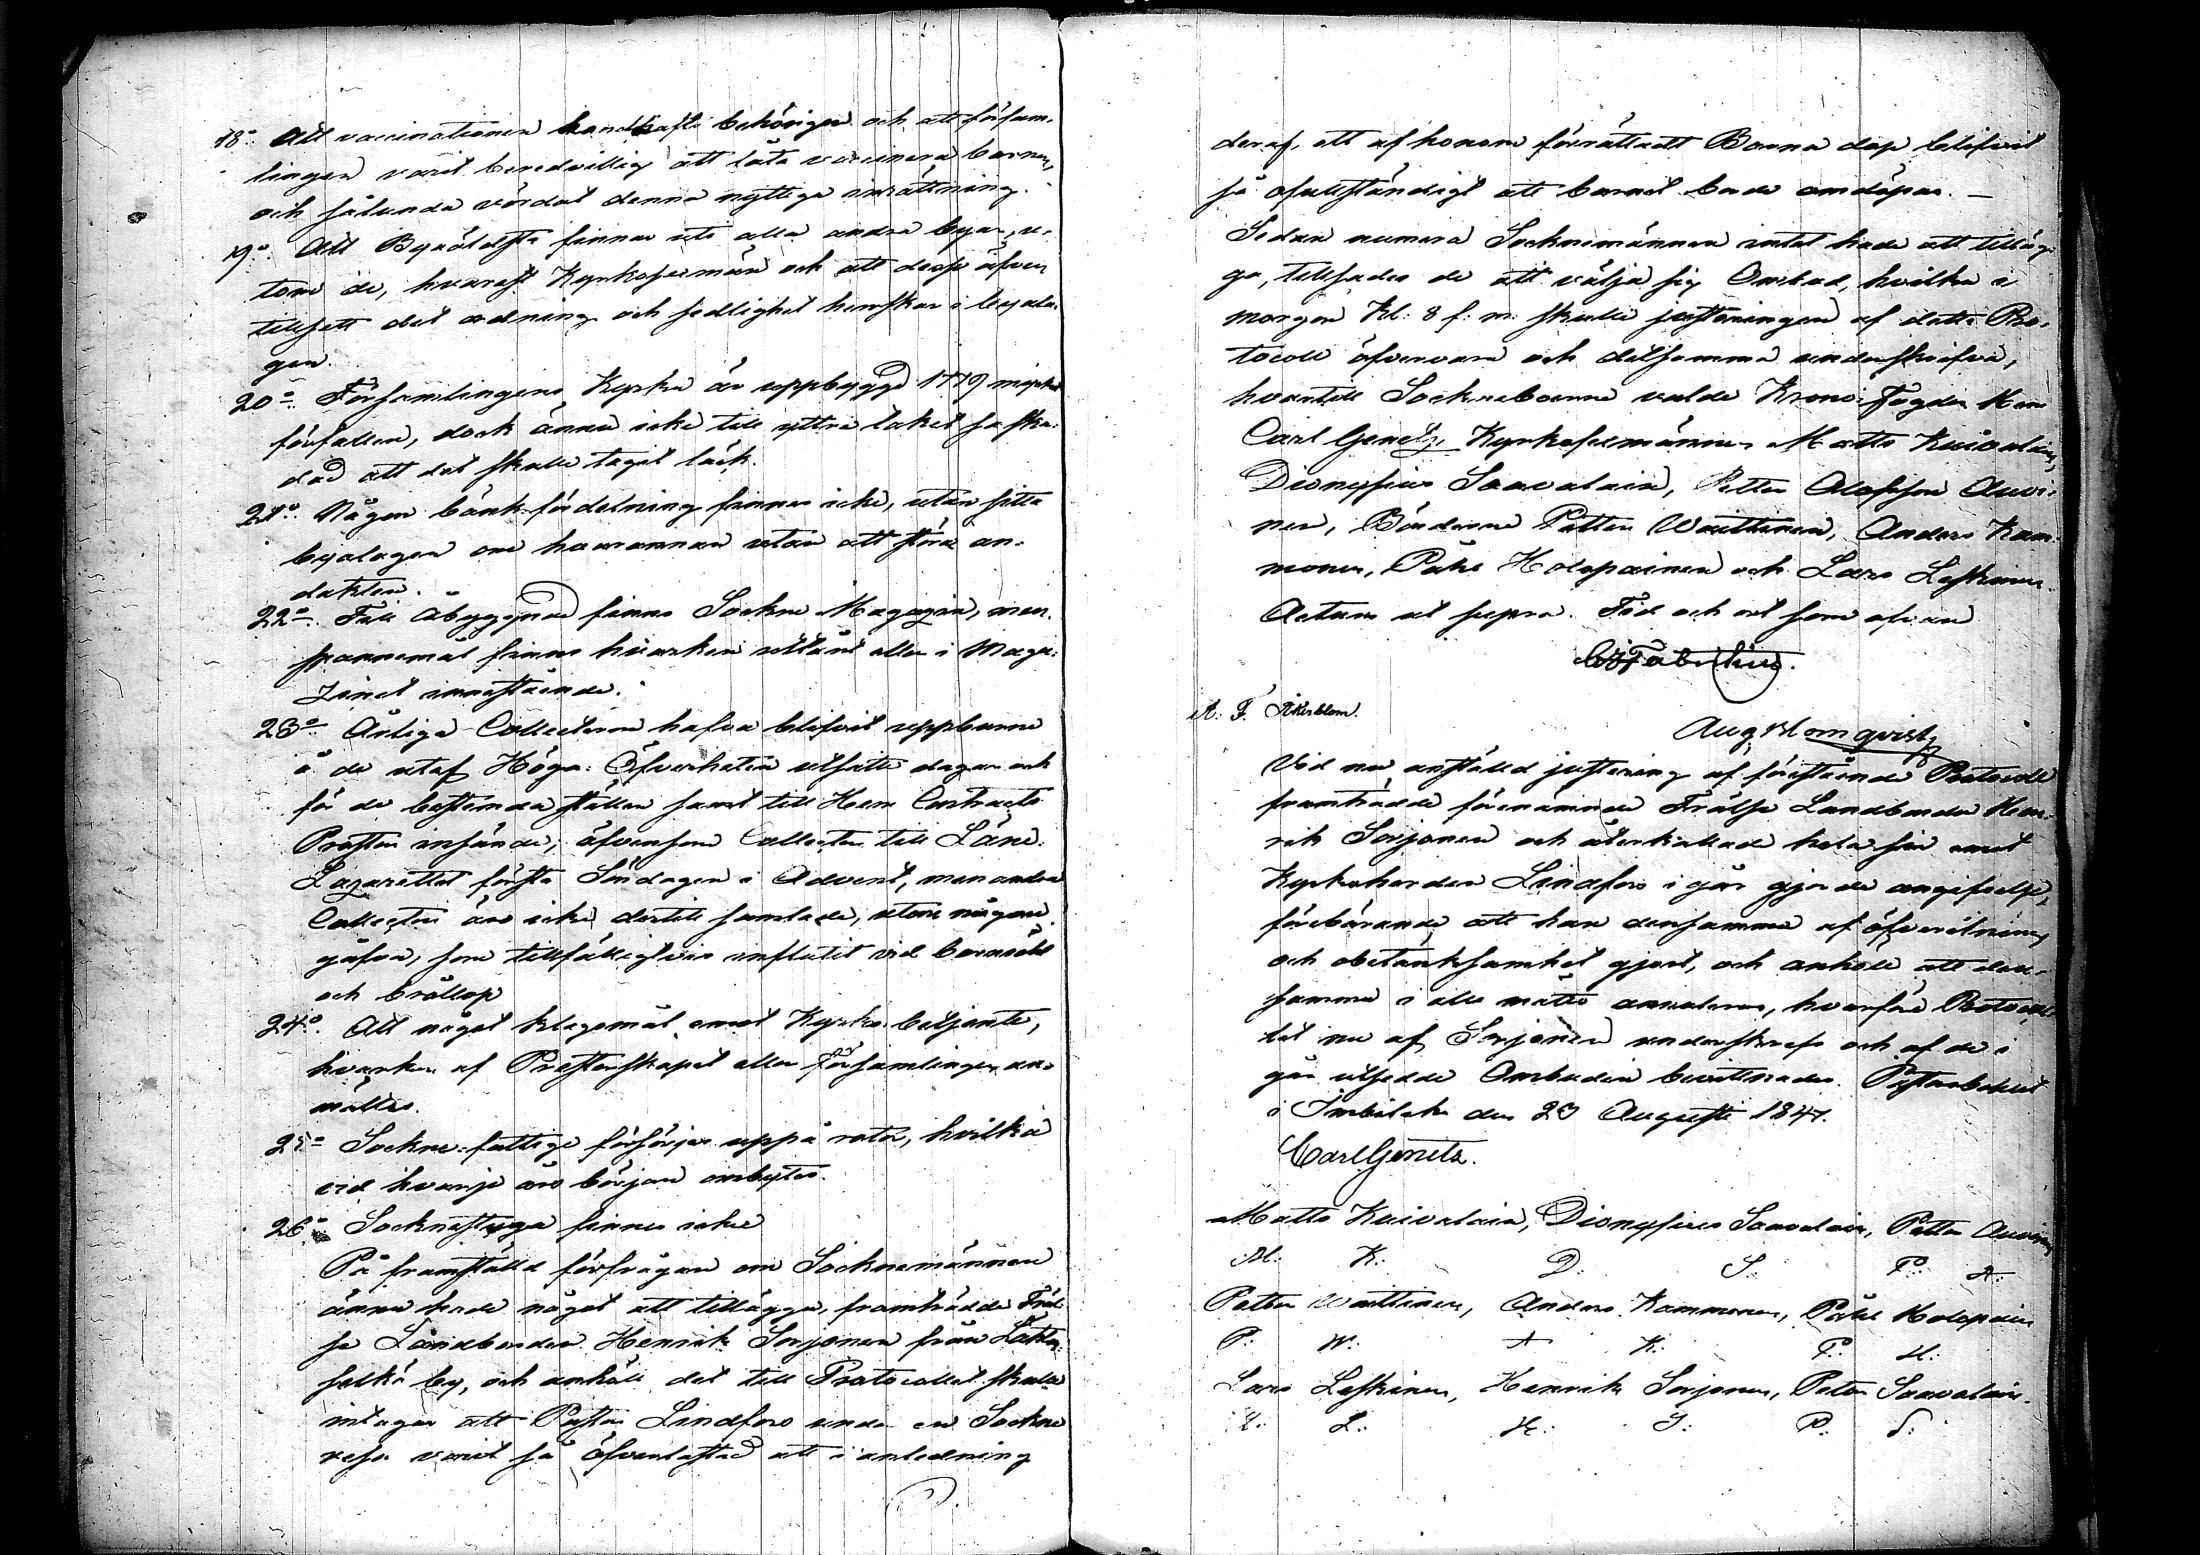 18:o Att vaccinationen handhafts behörigen och att församlingen
lingen varit beredvillig att låta vaccinera barnen,
och sålunda vördat denna nyttiga inrättning.
19:o Att Byäldste finnas uti alla andra byar, u-
tom de, hvarest Kyrkosexmän och att desse äfven
tillsett det ordning och sedlighet herrskar i byala-
gen.
20:o Församlingens Kyrka är uppbyggd 1779 mycket
förfallen, dock ännu icke till yttre taket så ska-
dad att det skulle tagit läck.
21:o Någon bänkfördelning finnes icke, utan sitta
byalagen om hvarannan utan att störa an-
dakten.
22:o Full åbyggnad finns Sockne Magazin, men
spannemål finns hvarken utlånt eller i Maga-
zinet innestående.
23:o Årliga Collecterne hafva blifvit uppburne
å de utaf Höga Öfverheten utsatte dagar och
för de bestemda ställen samt till Herr Contracts
Prosten insände, äfvensom Collecten till Läns
Lazarettet första Söndagen i Advent, men andra
Collecter äro icke dertill samlade, utom någon
gåfva, som tillfälligtvis influtit vid barnsöhl
och bröllop
24:o Att något klagomål emot Kyrko-betjente,
hvarken af Presterskapet eller Församlingen an-
mältes.
25:o Sockne-fattige försörjes uppå rotar, hvilka
vid hvarje års början ombytes.
26:o Socknestuga finnes icke
På framställd förfrågan om Socknemännen
ännu hade något att tillägga, framträdde Fräl-
se Landbonden Henrik Sorjonen från
by, och anhöll det till Protocollet skulle
intagas att Pastor Lindfors under en Sockne
resa varit så öfverlastad att i anledning
deraf, ett af honom förrättadt Barna dop blifvit
så ofullständigt att barnet bade omdöpas. —
Sedan numera Socknemännen intet hade att tilläg-
ga, tillsades de att välja sig Ombud, hvilka i
morgon Kl: 8 f: m: skulle justeringen af detta Pro-
tocoll öfvervara och detsamma underskrifva,
hvartill Socknebornne valde Krono Fogden Herr
Carl Genetz, Kyrkosexmännen Matts Kuivalain,
Dionysius Saavalain, Petter Olofsson Auvi-
nen, Bönderne Petter Waittinen, Anders Kam-
monen, Påhl Holopainen och Lars Leskinen.
Actum ut supra. Tid och ort som ofvan
Fabritius.
A: F. Åkerblom.
Aug Blomqvist
Vid nu anställd justering af förestående Protocoll
framträdde förenämnde Frälse Landbonden Hen-
rik Sorjonen och återkallade hela sin emot
Kyrkoherden Lindfors i går gjorde angifvelse,
förebärande att han densamma af öfverilning
och obetänksamhet gjort, och anhöll att den-
samma i alla måtto annuleras, hvarföre Protocol-
let nu af Sorjonen underskrefs och af de i
går utsedde Ombuden bevittnades. Pastorbohlet
i Imbilaks den 23 Augusti 1847.
Carl Genetz.
Matts Kuivalain, Dionysius Saavalain, Petter Auvinen
M: K: D: S: P: A:
Petter Waittinen, Anders Kammonen, Påhl Holopain
P: W: A K: P: H:
Lars Leskinen, Henrik Sorjonen, Peter Saavalain.
L: L: H: S: P: S: